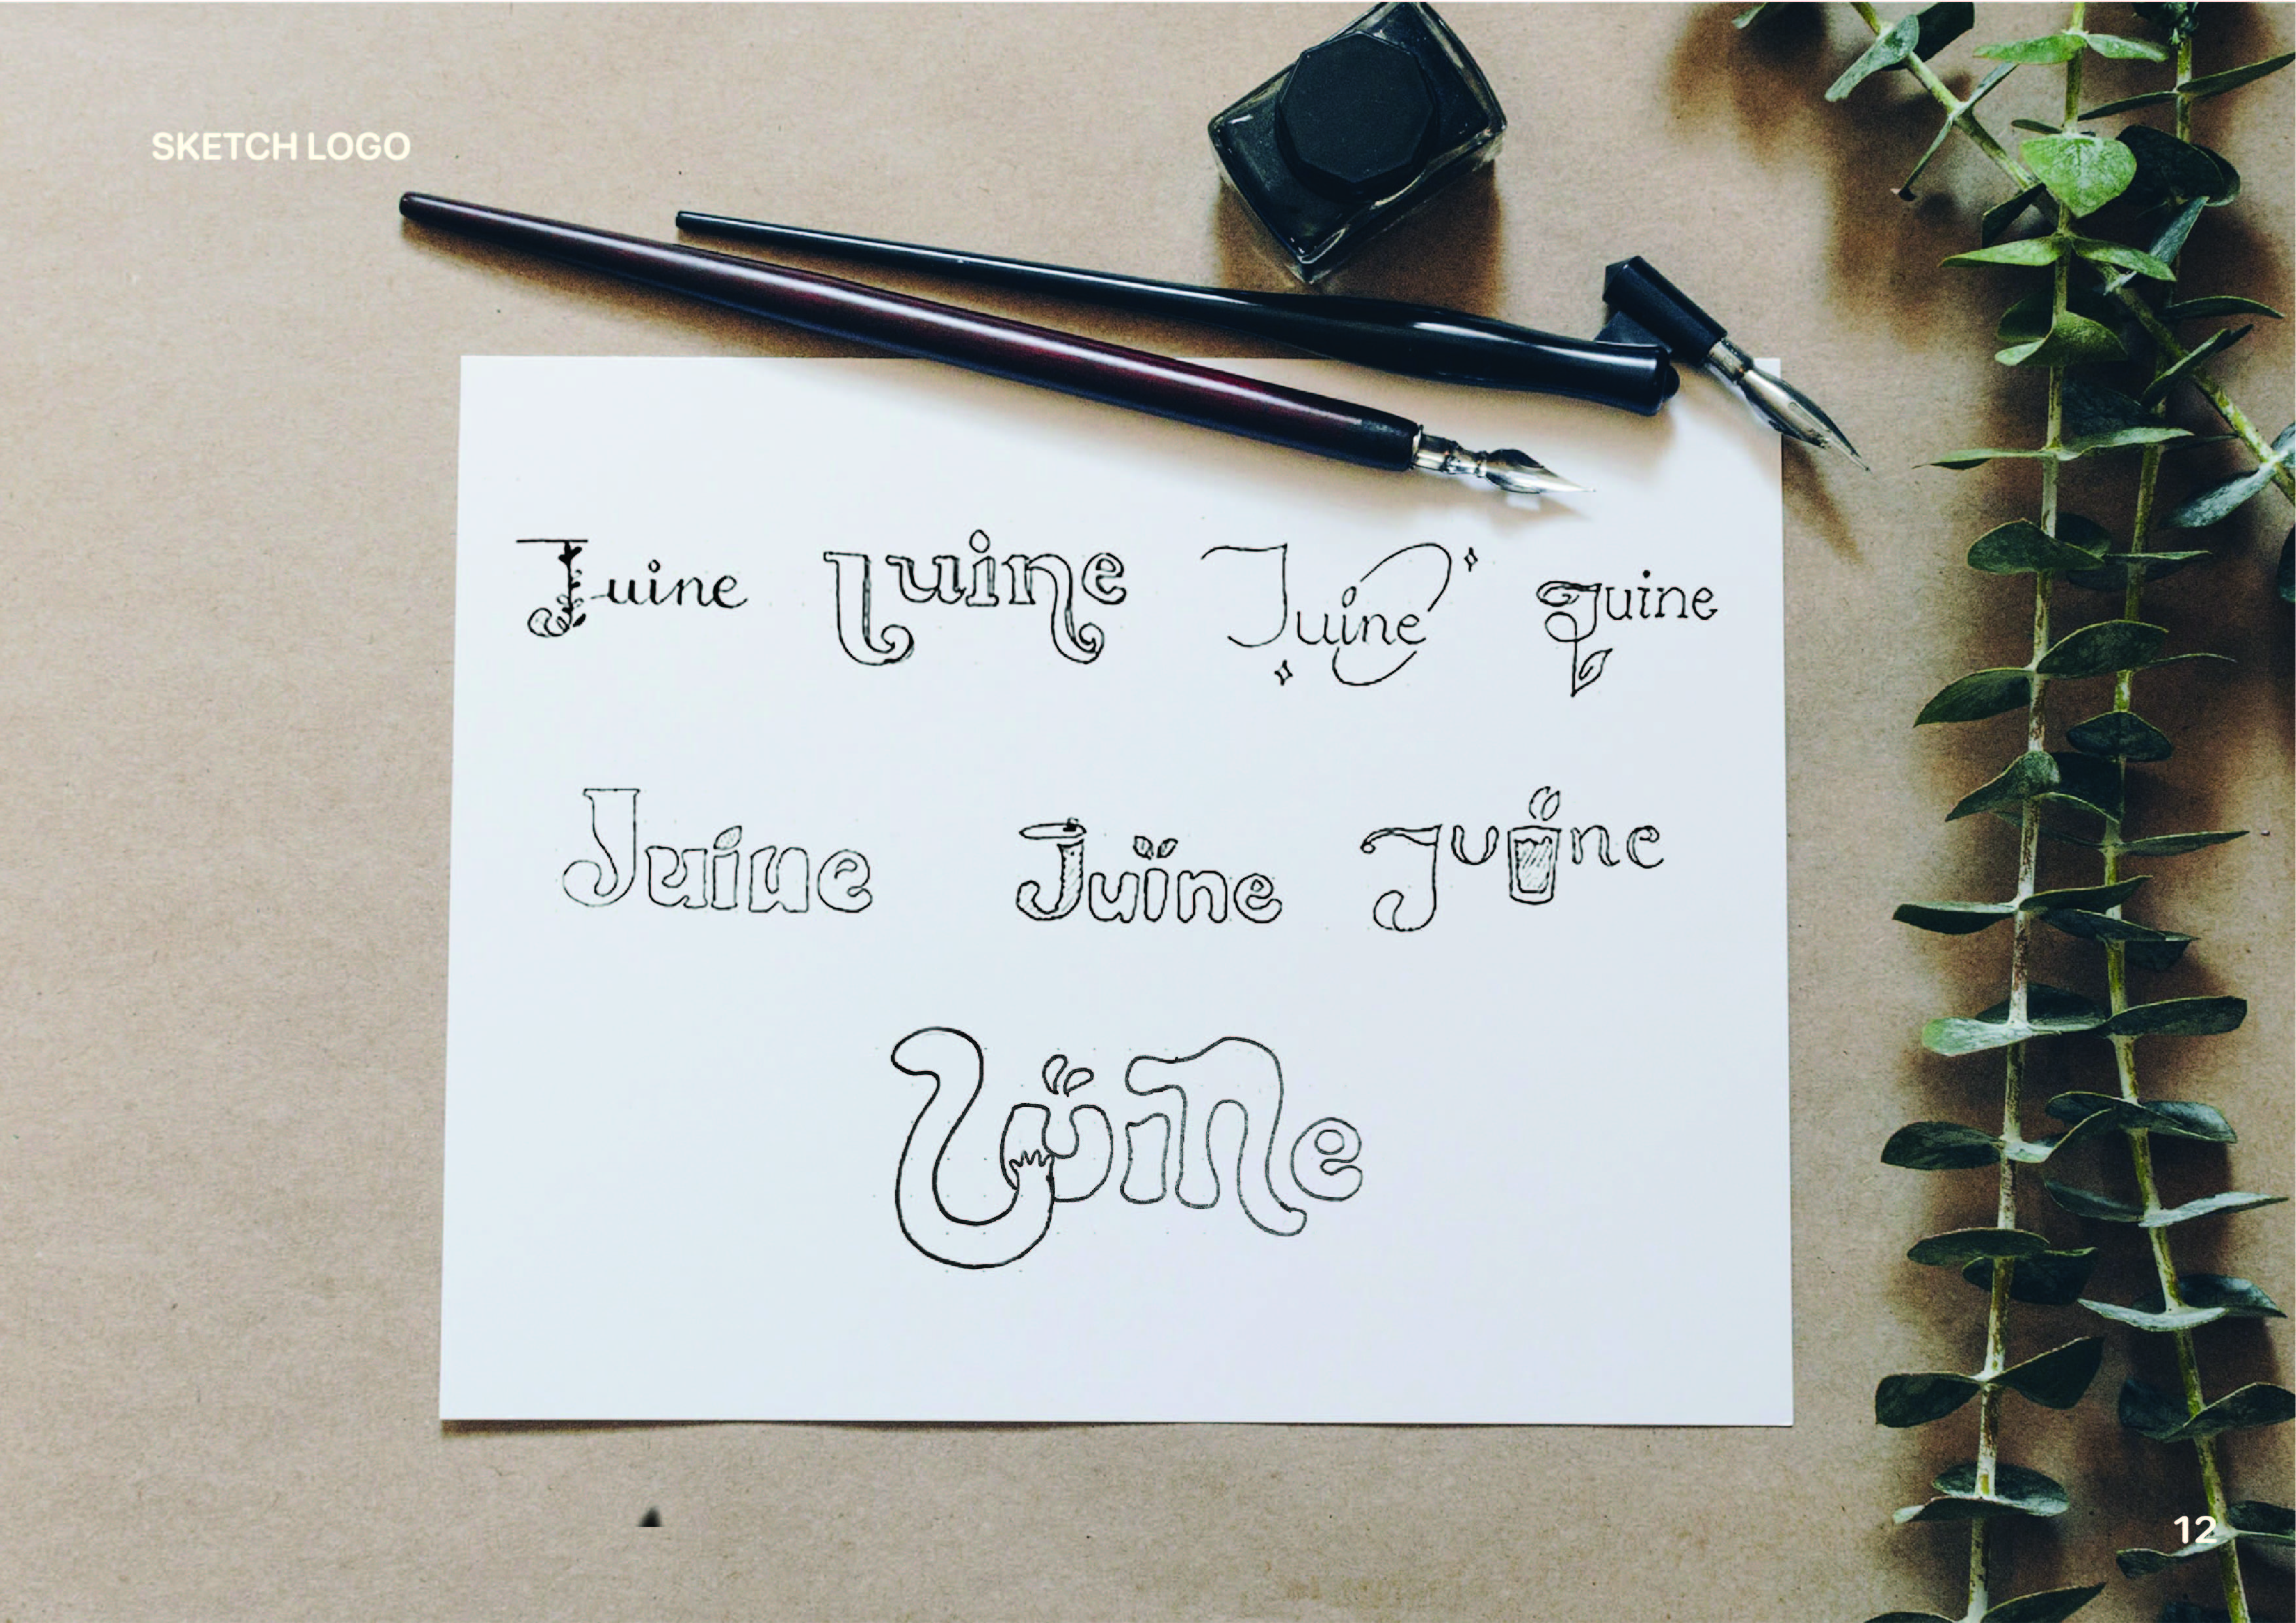 SKETCH LOGO
Juine Juine Juine Juine
Juine Juine Juine
Juine
12